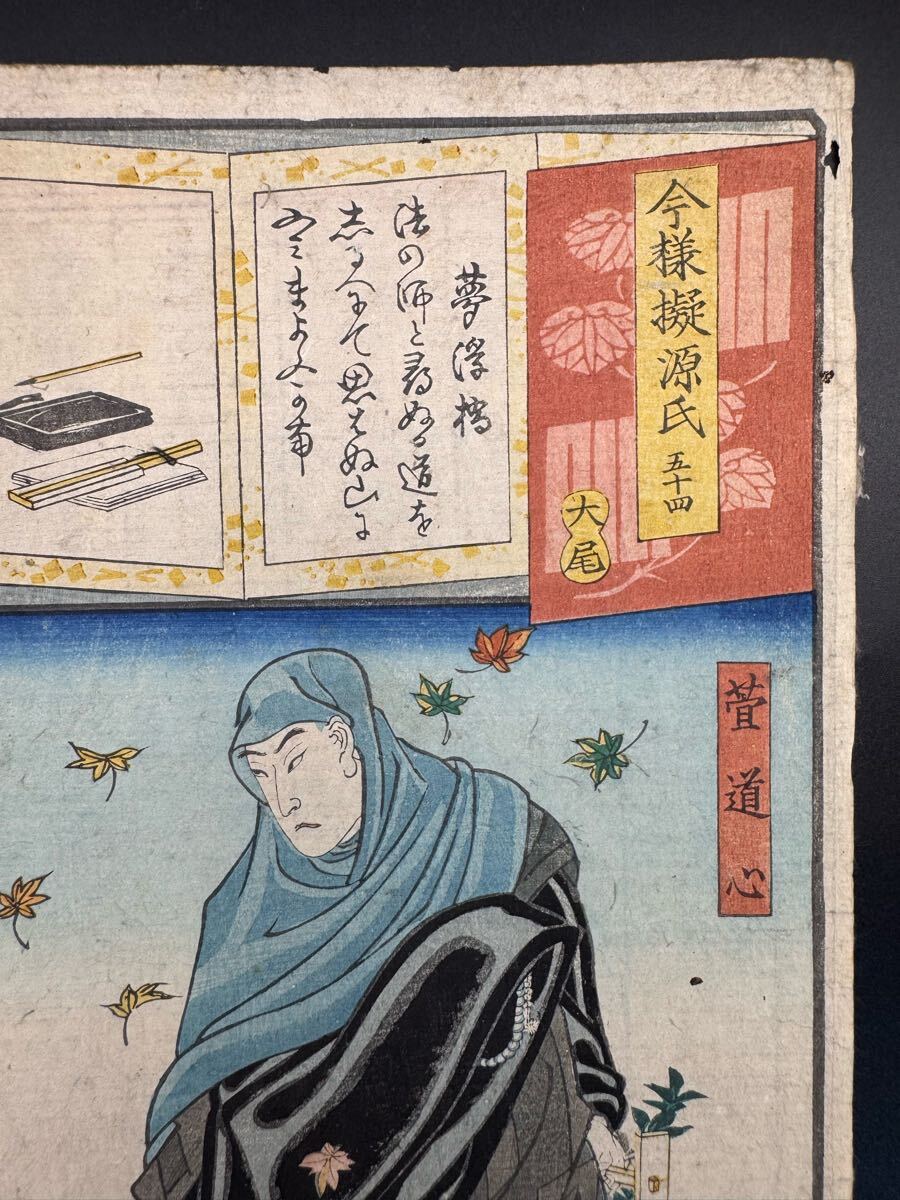 今様擬源氏 五十四
大尾
夢浮橋
法の師と尋ぬる道を
志るへにて思はぬ山に
ふミまよふか南
萱道心